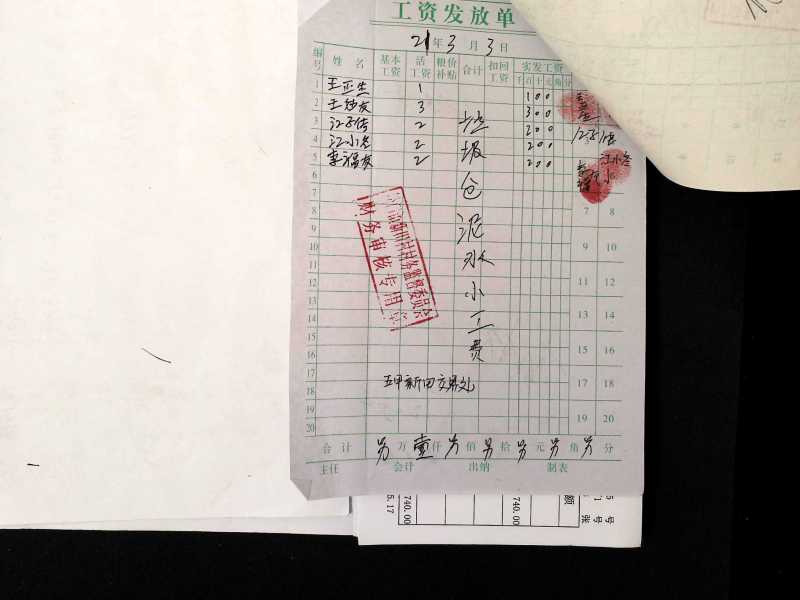 工资发放单
21年3月3日
编号 姓名 基本工资 活工资 粮价补贴 合计 扣回工资 实发工资
千百十元角分
1 王正生 1 100
2 王炒友 3 300
3 江子传 2 200 江子传
4 江小冬 2 200 江小冬
5 李福友 2 200
6
7 7 8
8
9 9 10
10
11 11 12
12
13 13 14
14
15 15 16
16
17 17 18
18
19 19 20
20
垃圾仓泥水小工费
新田村村务监督委员会
财务审核专用章
五甲新田交界处
合计 万 壹仟 佰 拾 元 角 分
主任 会计 出纳 制表
740.00
740.00
5.17
额
5号
1号
张